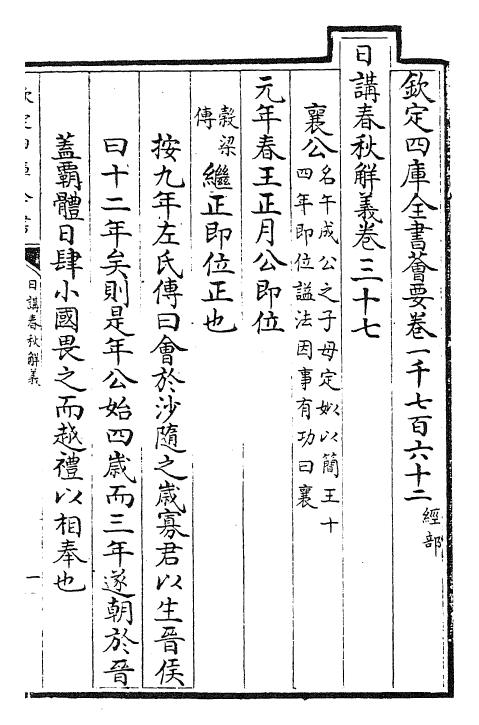 欽定四庫全書薈要卷一千七百六十二
經部
日講春秋解義卷三十七
襄公
名午成公之子母定姒以簡王十
四年即位諡法因事有功曰襄
元年春王正月公即位
穀梁
傳
繼正即位正也
按九年左氏傳曰會於沙隨之歲寡君以生晉侯
曰十二年矣則是年公始四歲而三年遂朝於晉
蓋霸體日肆小國畏之而越禮以相奉也
欽定四庫全書
日講春秋解義
一